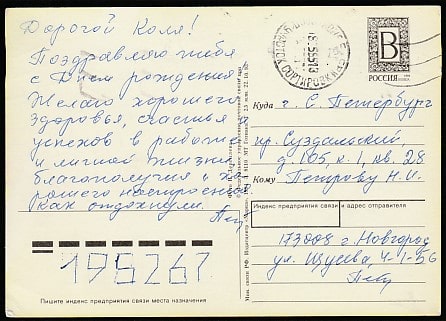 Дорогой Коля!
Поздравляю тебя
с Днем рождения
Желаю хорошего
здоровья, счастья
успехов в работе
и личной жизни
благополучия и хо-
рошего настроения
Как отдохнули.
Петр
196267
Пишите индекс предприятия связи места назначения
В
РОССИЯ
Куда г. С. Петербург
пр. Суздальский,
д. 105, к. 1, кв. 28
Кому Петрову Н. И.
Индекс предприятия связи и адрес отправителя
173008 г. Новгород
ул. Щусева, 4-1-56
Петр